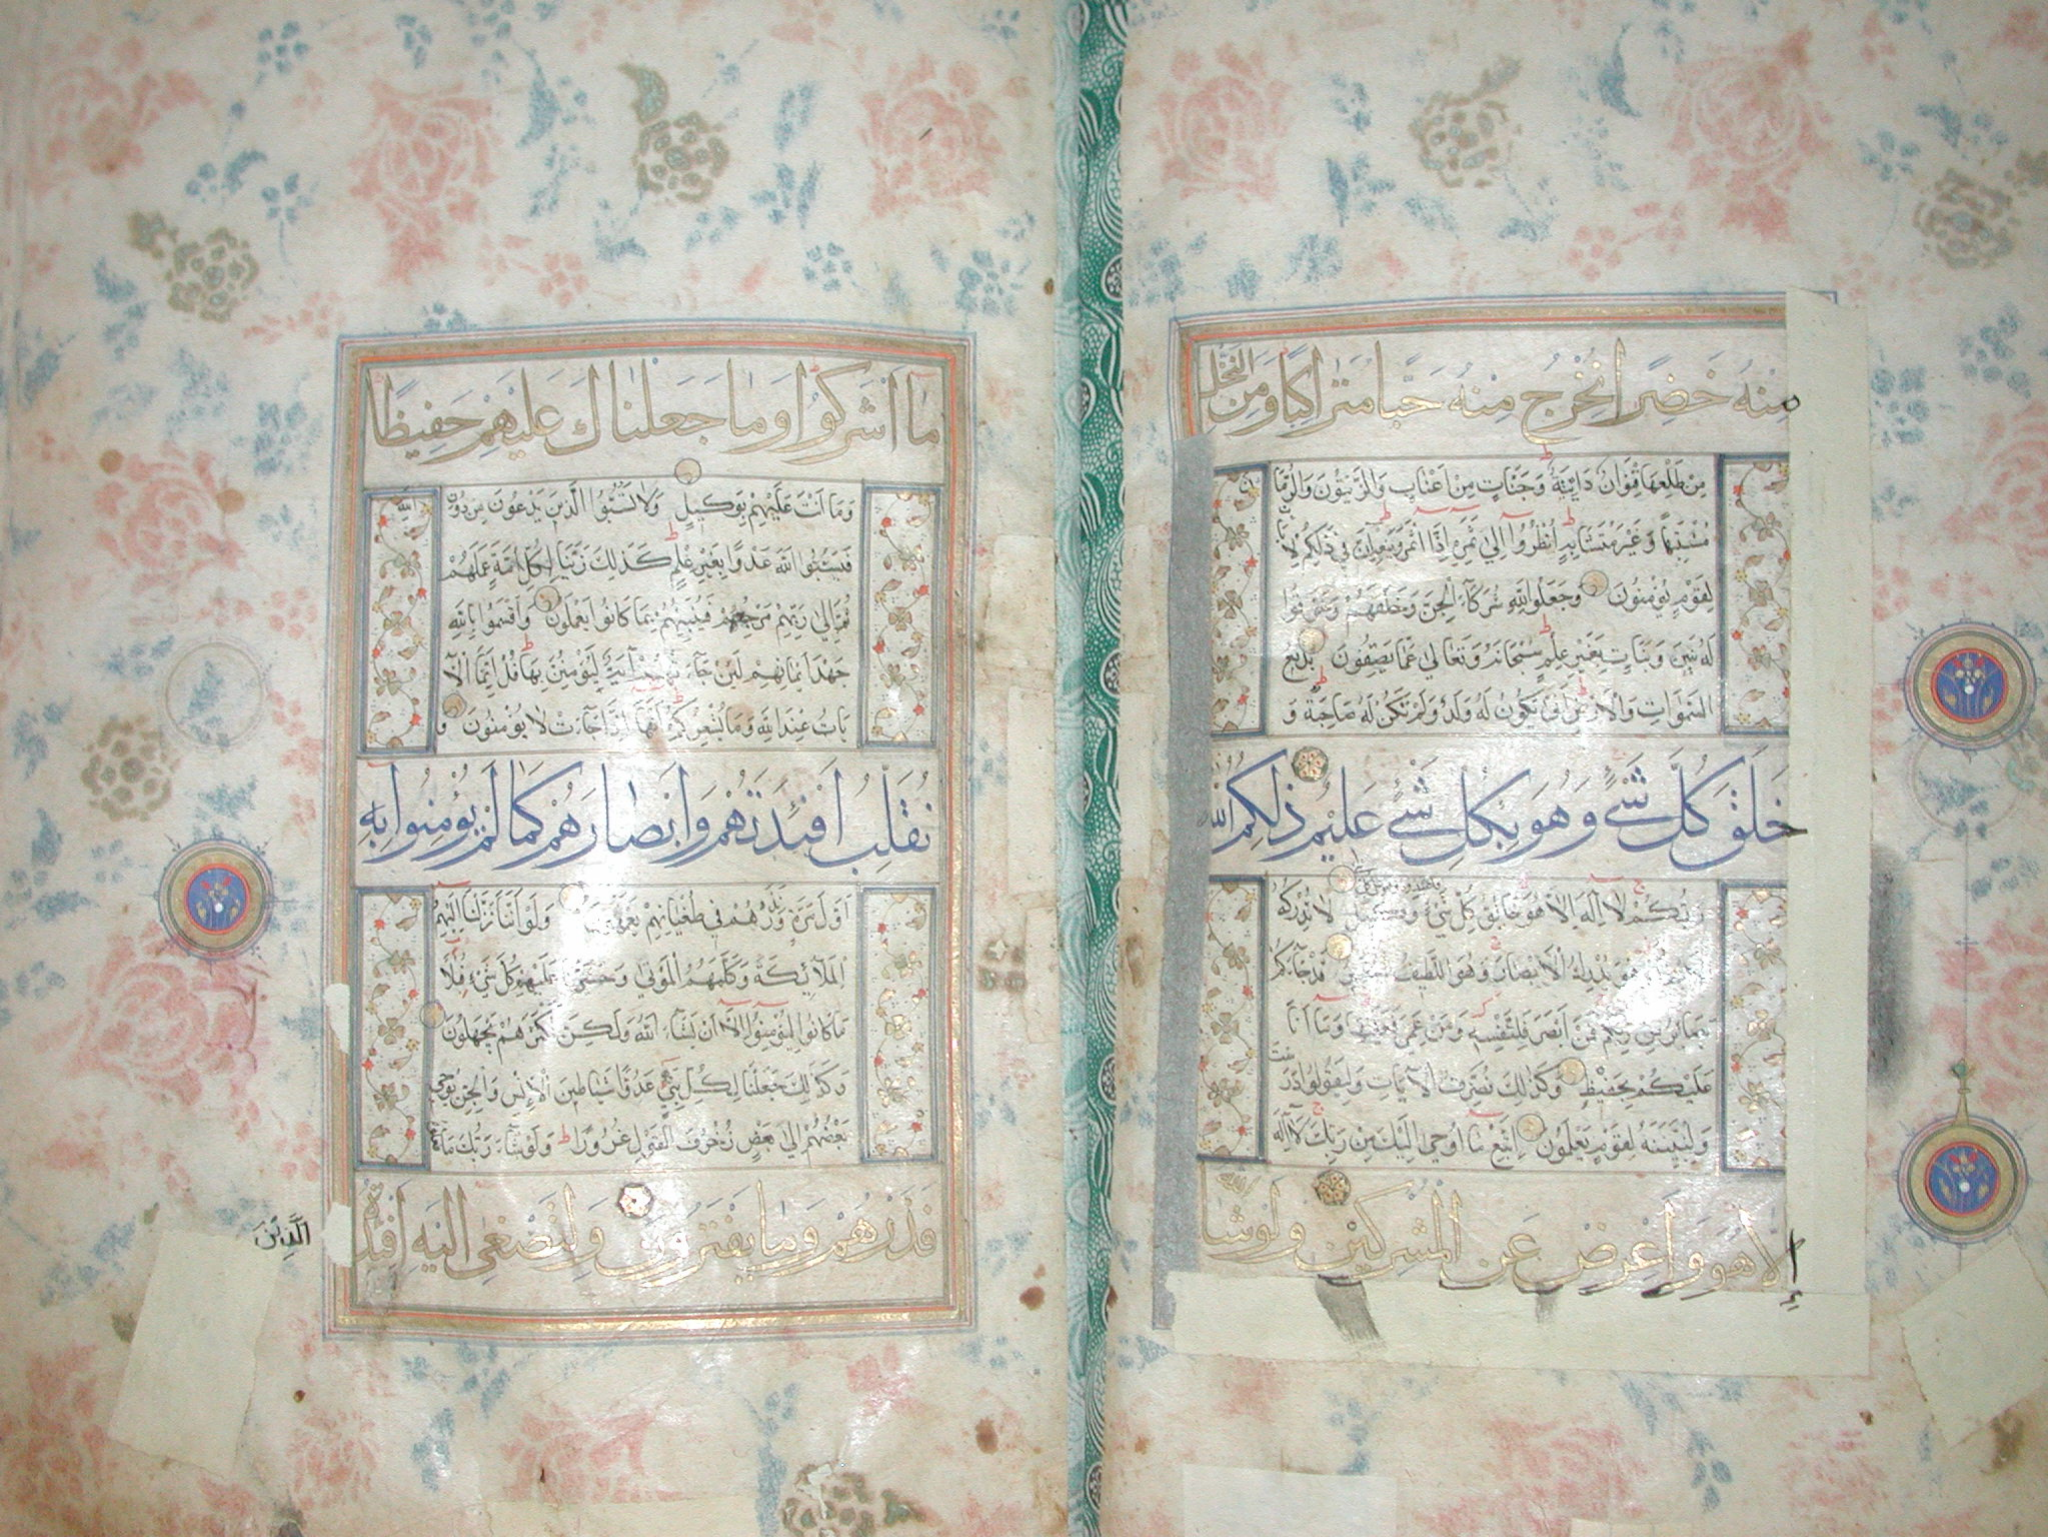 منه خضرا نخرج منه حبا متراكبا ومن النخل
من طلعها قنوان دانية وجنات من اعناب والزيتون والرمان
مشتبها وغير متشابه انظروا الى ثمره اذا اثمر وينعه ان في ذلكم لايات
لقوم يؤمنون وجعلوا لله شركاء الجن وخلقهم وخرقوا
له بنين وبنات بغير علم سبحانه وتعالى عما يصفون بديع
السموات والارض انى يكون له ولد ولم تكن له صاحبة و
خلق كل شئ وهو بكل شئ عليم ذلكم الله
ربكم لا اله الا هو خالق كل شئ وكيل لا تدركه
وهو يدرك الابصار وهو اللطيف قد جاءكم
بصائر من ربكم فمن ابصر فلنفسه ومن عمى فعليها وما انا
عليكم بحفيظ وكذلك نصرف الايات وليقولوا درست
ولنبينه لقوم يعلمون اتبع ما اوحى اليك من ربك لا اله
الا هو واعرض عن المشركين ولو شاء الله
ما اشركوا وما جعلناك عليهم حفيظا
وما انت عليهم بوكيل ولا تسبوا الذين يدعون من دون الله
فيسبوا الله عدوا بغير علم كذلك زينا لكل امة عملهم
ثم الى ربهم مرجعهم فينبئهم بما كانوا يعملون واقسموا بالله
جهد ايمانهم لئن جاءتهم آية ليؤمنن بها قل انما الآ
يات عند الله وما يشعركم انها اذا جاءت لا يؤمنون و
نقلب افئدتهم وابصارهم كما لم يؤمنوا به
اول مرة ونذرهم في طغيانهم يعمهون ولو اننا نزلنا اليهم
الملائكة وكلمهم الموتى وحشرنا عليهم كل شئ قبلا
ما كانوا ليؤمنوا الا ان يشاء الله ولكن اكثرهم يجهلون
وكذلك جعلنا لكل نبي عدوا شياطين الانس والجن يوحي
بعضهم الى بعض زخرف القول غرورا ولو شاء ربك ما فعلوه
فذرهم وما يفترون ولتصغى اليه افئدة
الَّذِينَ